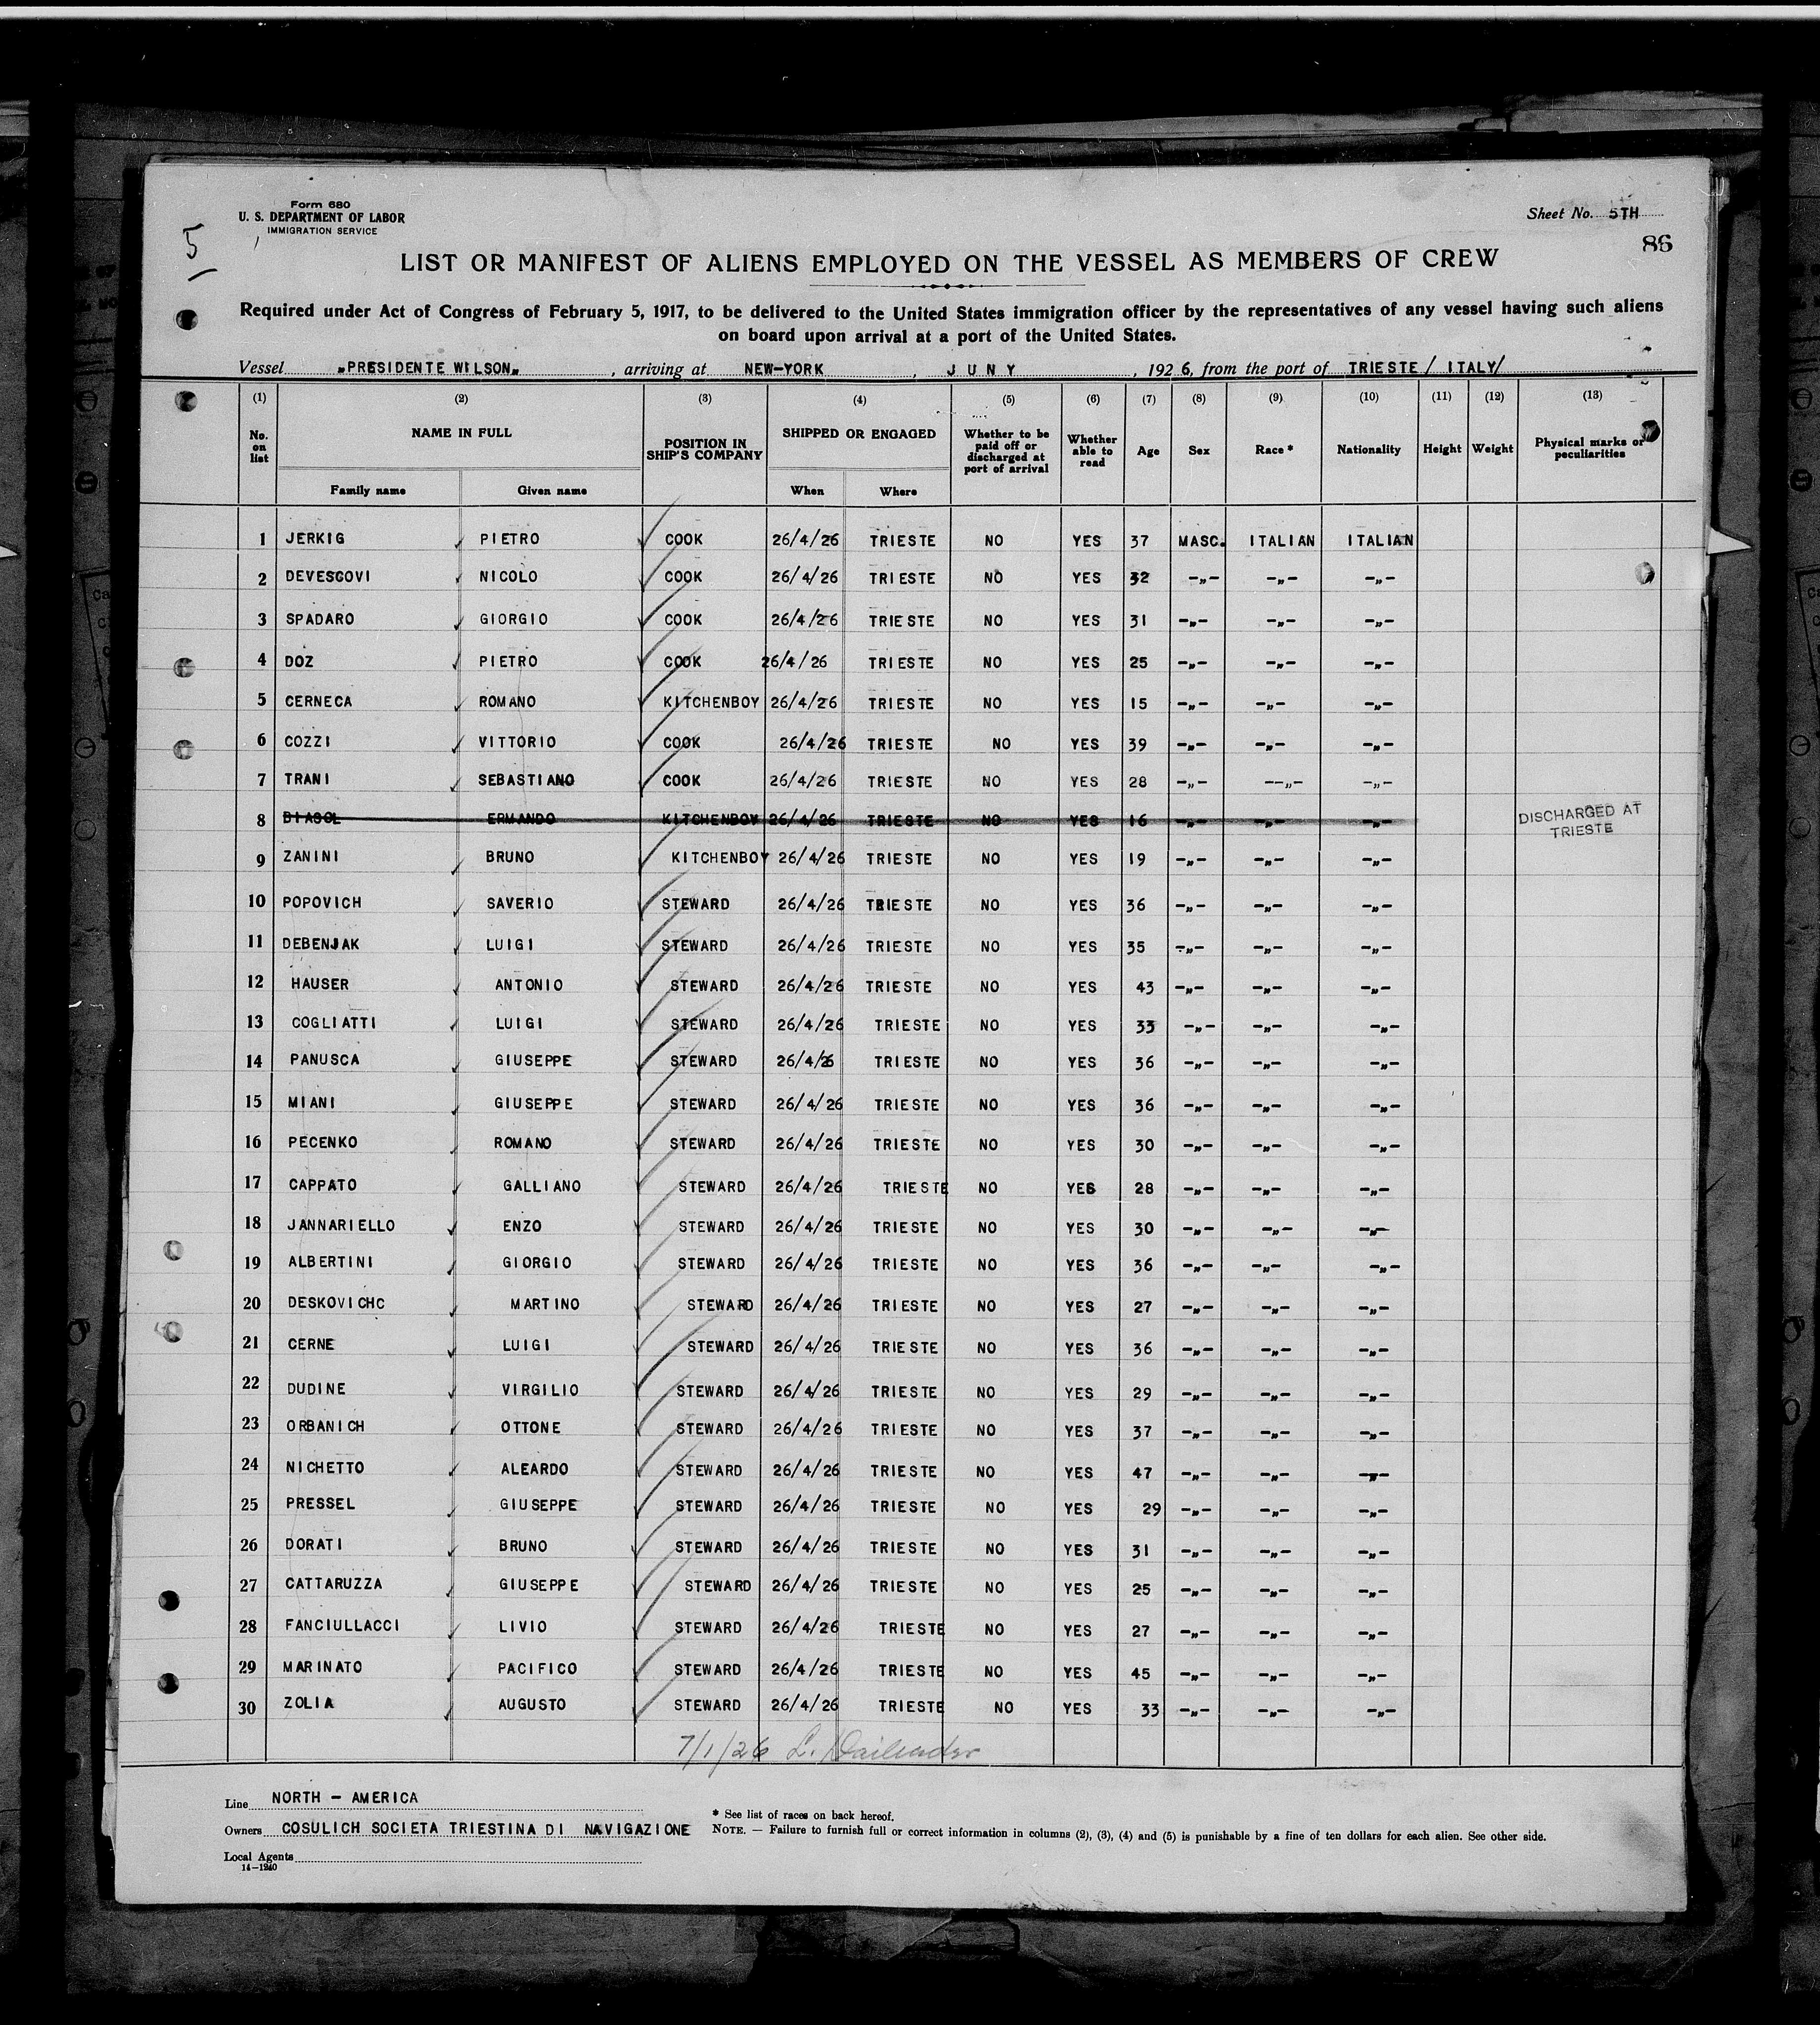 Form 680
U. S. DEPARTMENT OF LABOR
IMMIGRATION SERVICE
Sheet No. 5TH
86
5
LIST OR MANIFEST OF ALIENS EMPLOYED ON THE VESSEL AS MEMBERS OF CREW
Required under Act of Congress of February 5, 1917, to be delivered to the United States immigration officer by the representatives of any vessel having such aliens
on board upon arrival at a port of the United States.
Vessel „PRESIDENTE WILSON„, arriving at NEW-YORK, JUNY, 1926, from the port of TRIESTE/ ITALY/
(1) (2) (3) (4) (5) (6) (7) (8) (9) (10) (11) (12) (13)
No. on list NAME IN FULL POSITION IN SHIP'S COMPANY SHIPPED OR ENGAGED Whether to be paid off or discharged at port of arrival Whether able to read Age Sex Race* Nationality Height Weight Physical marks or peculiarities
Family name Given name When Where
1 JERKIG PIETRO COOK 26/4/26 TRIESTE NO YES 37 MASC. ITALIAN ITALIAN
2 DEVESCOVI NICOLO COOK 26/4/26 TRIESTE NO YES 32 -„- -„- -„-
3 SPADARO GIORGIO COOK 26/4/26 TRIESTE NO YES 31 -„- -„- -„-
4 DOZ PIETRO COOK 26/4/26 TRIESTE NO YES 25 -„- -„- -„-
5 CERNECA ROMANO KITCHENBOY 26/4/26 TRIESTE NO YES 15 -„- -„- -„-
6 COZZI VITTORIO COOK 26/4/26 TRIESTE NO YES 39 -„- -„- -„-
7 TRANI SEBASTIANO COOK 26/4/26 TRIESTE NO YES 28 -„- --„- -„-
8 BIASOL ERMANDO KITCHENBOY 26/4/26 TRIESTE NO YES 16 -„- -„- -„- DISCHARGED AT TRIESTE
9 ZANINI BRUNO KITCHENBOY 26/4/26 TRIESTE NO YES 19 -„- -„- -„-
10 POPOVICH SAVERIO STEWARD 26/4/26 TRIESTE NO YES 36 -„- -„- -„-
11 DEBENJAK LUIGI STEWARD 26/4/26 TRIESTE NO YES 35 -„- -„- -„-
12 HAUSER ANTONIO STEWARD 26/4/26 TRIESTE NO YES 43 -„- -„- -„-
13 COGLIATTI LUIGI STEWARD 26/4/26 TRIESTE NO YES 33 -„- -„- -„-
14 PANUSCA GIUSEPPE STEWARD 26/4/26 TRIESTE NO YES 36 -„- -„- -„-
15 MIANI GIUSEPPE STEWARD 26/4/26 TRIESTE NO YES 36 -„- -„- -„-
16 PECENKO ROMANO STEWARD 26/4/26 TRIESTE NO YES 30 -„- -„- -„-
17 CAPPATO GALLIANO STEWARD 26/4/26 TRIESTE NO YES 28 -„- -„- -„-
18 JANNARIELLO ENZO STEWARD 26/4/26 TRIESTE NO YES 30 -„- -„- -„-
19 ALBERTINI GIORGIO STEWARD 26/4/26 TRIESTE NO YES 36 -„- -„- -„-
20 DESKOVICHC MARTINO STEWARD 26/4/26 TRIESTE NO YES 27 -„- -„- -„-
21 CERNE LUIGI STEWARD 26/4/26 TRIESTE NO YES 36 -„- -„- -„-
22 DUDINE VIRGILIO STEWARD 26/4/26 TRIESTE NO YES 29 -„- -„- -„-
23 ORBANICH OTTONE STEWARD 26/4/26 TRIESTE NO YES 37 -„- -„- -„-
24 NICHETTO ALEARDO STEWARD 26/4/26 TRIESTE NO YES 47 -„- -„- -„-
25 PRESSEL GIUSEPPE STEWARD 26/4/26 TRIESTE NO YES 29 -„- -„- -„-
26 DORATI BRUNO STEWARD 26/4/26 TRIESTE NO YES 31 -„- -„- -„-
27 CATTARUZZA GIUSEPPE STEWARD 26/4/26 TRIESTE NO YES 25 -„- -„- -„-
28 FANCIULLACCI LIVIO STEWARD 26/4/26 TRIESTE NO YES 27 -„- -„- -„-
29 MARINATO PACIFICO STEWARD 26/4/26 TRIESTE NO YES 45 -„- -„- -„-
30 ZOLIA AUGUSTO STEWARD 26/4/26 TRIESTE NO YES 33 -„- -„- -„-
7/1/26 L.
Line NORTH - AMERICA
Owners COSULICH SOCIETA TRIESTINA DI NAVIGAZIONE
Local Agents
14-1240
* See list of races on back hereof.
NOTE. — Failure to furnish full or correct information in columns (2), (3), (4) and (5) is punishable by a fine of ten dollars for each alien. See other side.